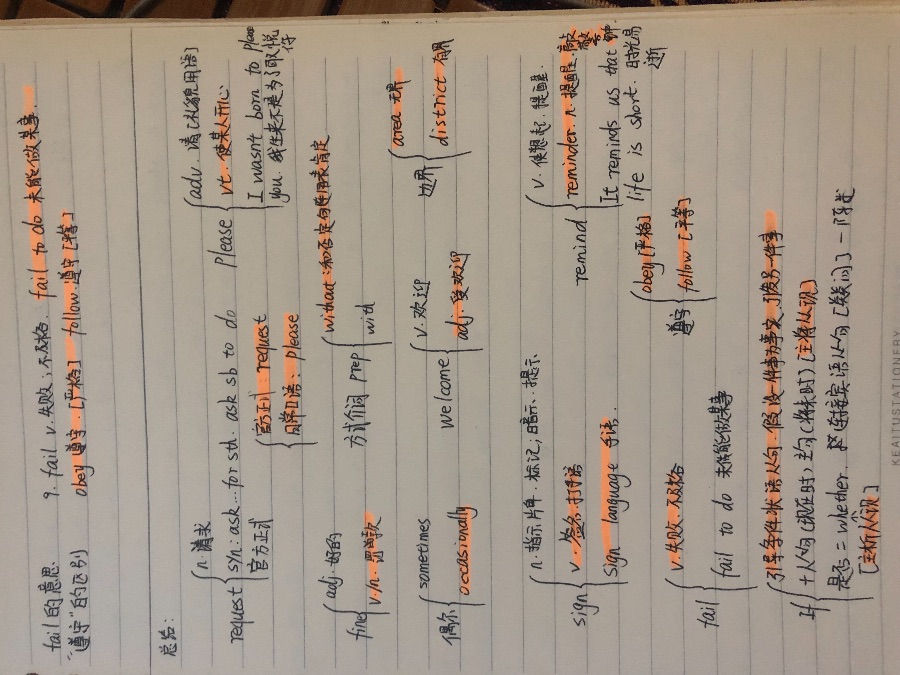 fail 的意思. 9. fail v. 失败; 不及格. fail to do 未能做某事.
"遵守"的区别 obey 遵守. [严格] follow. 遵守 [平等]
总结:
request { n. 请求
syn: ask...for sth. ask sb to do
官方正式
官方正式: request
简单口语: please
Please { adv. 请 [礼貌用语]
vt. 使某人开心
I wasn't born to please
you. 我生来不是为了取悦
你
fine { adj. 好的
v./n. 罚款
方式介词 prep { without: 和否定句连用表肯定
with
偶尔 { sometimes
occasionally
welcome { v. 欢迎
adj. 受欢迎
边界 { area 无界
district 有界
sign { n. 指示牌. 标记; 暗示、提示.
v. 签名. 打手语
Sign language 手语.
remind { v. 使想起. 提醒.
reminder n. 提醒.
It reminds us that
life is short. 时光易
逝
fail { v. 失败. 不及格
fail to do 未能做某事
遵守 { obey [严格]
follow [平等]
If { 引导条件状语从句. 假设一件事 引发另一件事
+ 从句 (现在时), 主句 (将来时) [主将从现]
是否 = whether. 连接宾语从句 [疑问]
KEAITUSTATIONERY